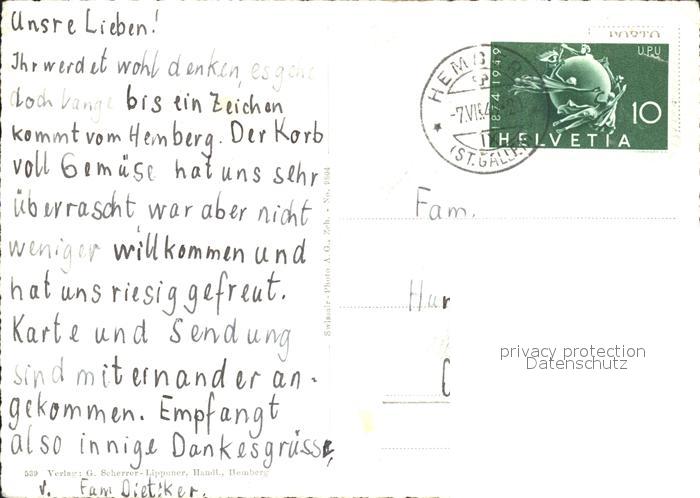 Unsre Lieben!
Ihr werdet wohl denken, es gehe
doch lange bis ein Zeichen
kommt vom Hemberg. Der Korb
voll Gemüse hat uns sehr
überrascht war aber nicht
weniger willkommen und
hat uns riesig gefreut.
Karte und Sendung
sind miteinander an-
gekommen. Empfangt
also innige Dankesgrüsse,
v. Fam Dietiker.
539 Verlag: G. Scherrer-Lippuner, Handl., Hemberg
Swissair-Photo A.G., Zch. - No.
PORTO
HEMBERG
-7.VII.4
(ST. GALLEN)
1874-1949
U.P.U
10
HELVETIA
Fam.
Hur
privacy protection
Datenschutz